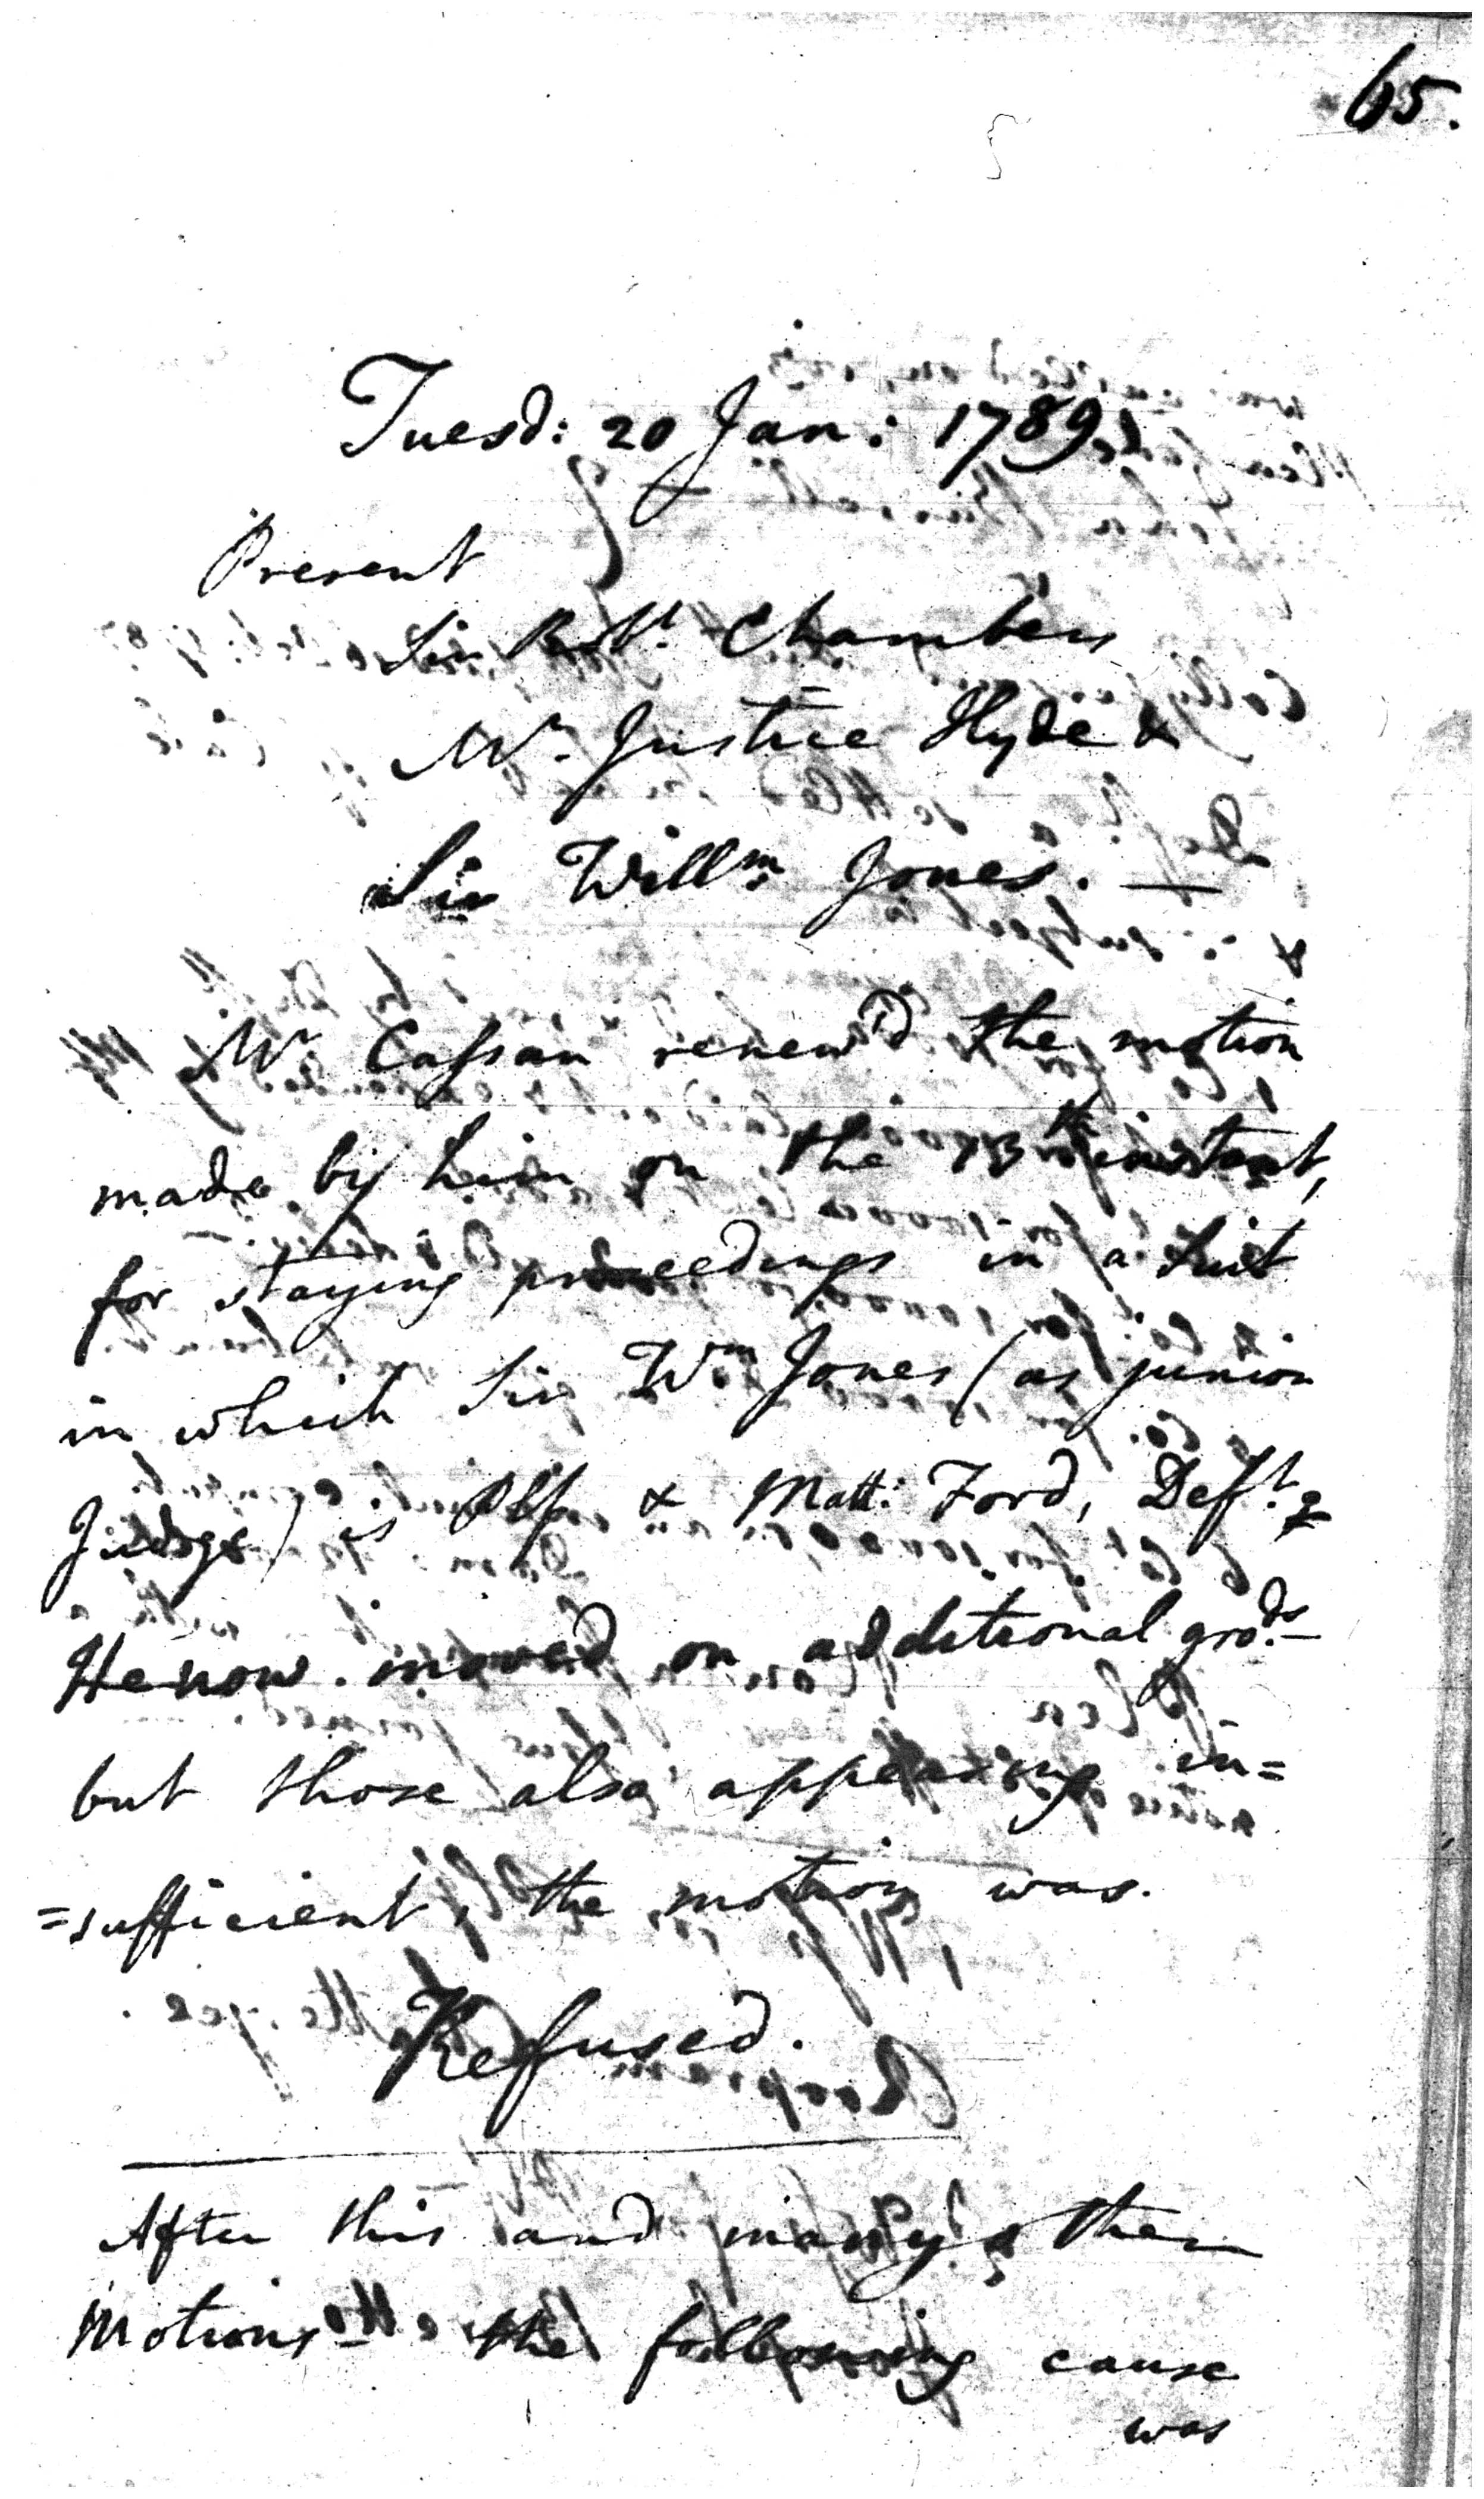 65.
Tuesd: 20 Jan: 1789
Present
Sir Robt. Chambers
Mr. Justice Hyde &
Sir Willm. Jones. —
Mr Cassan renew'd the motion
made by him on the 13th instant,
for staying proceedings in a Suit
in which Sir Wm Jones (as junior
Judge) is Plf & Matt: Ford, Deft. &
He now moved on additional grods. —
but those also appearing in=
=sufficient, the motion was.
Refused.
After this and many other
Motions — the following cause
was